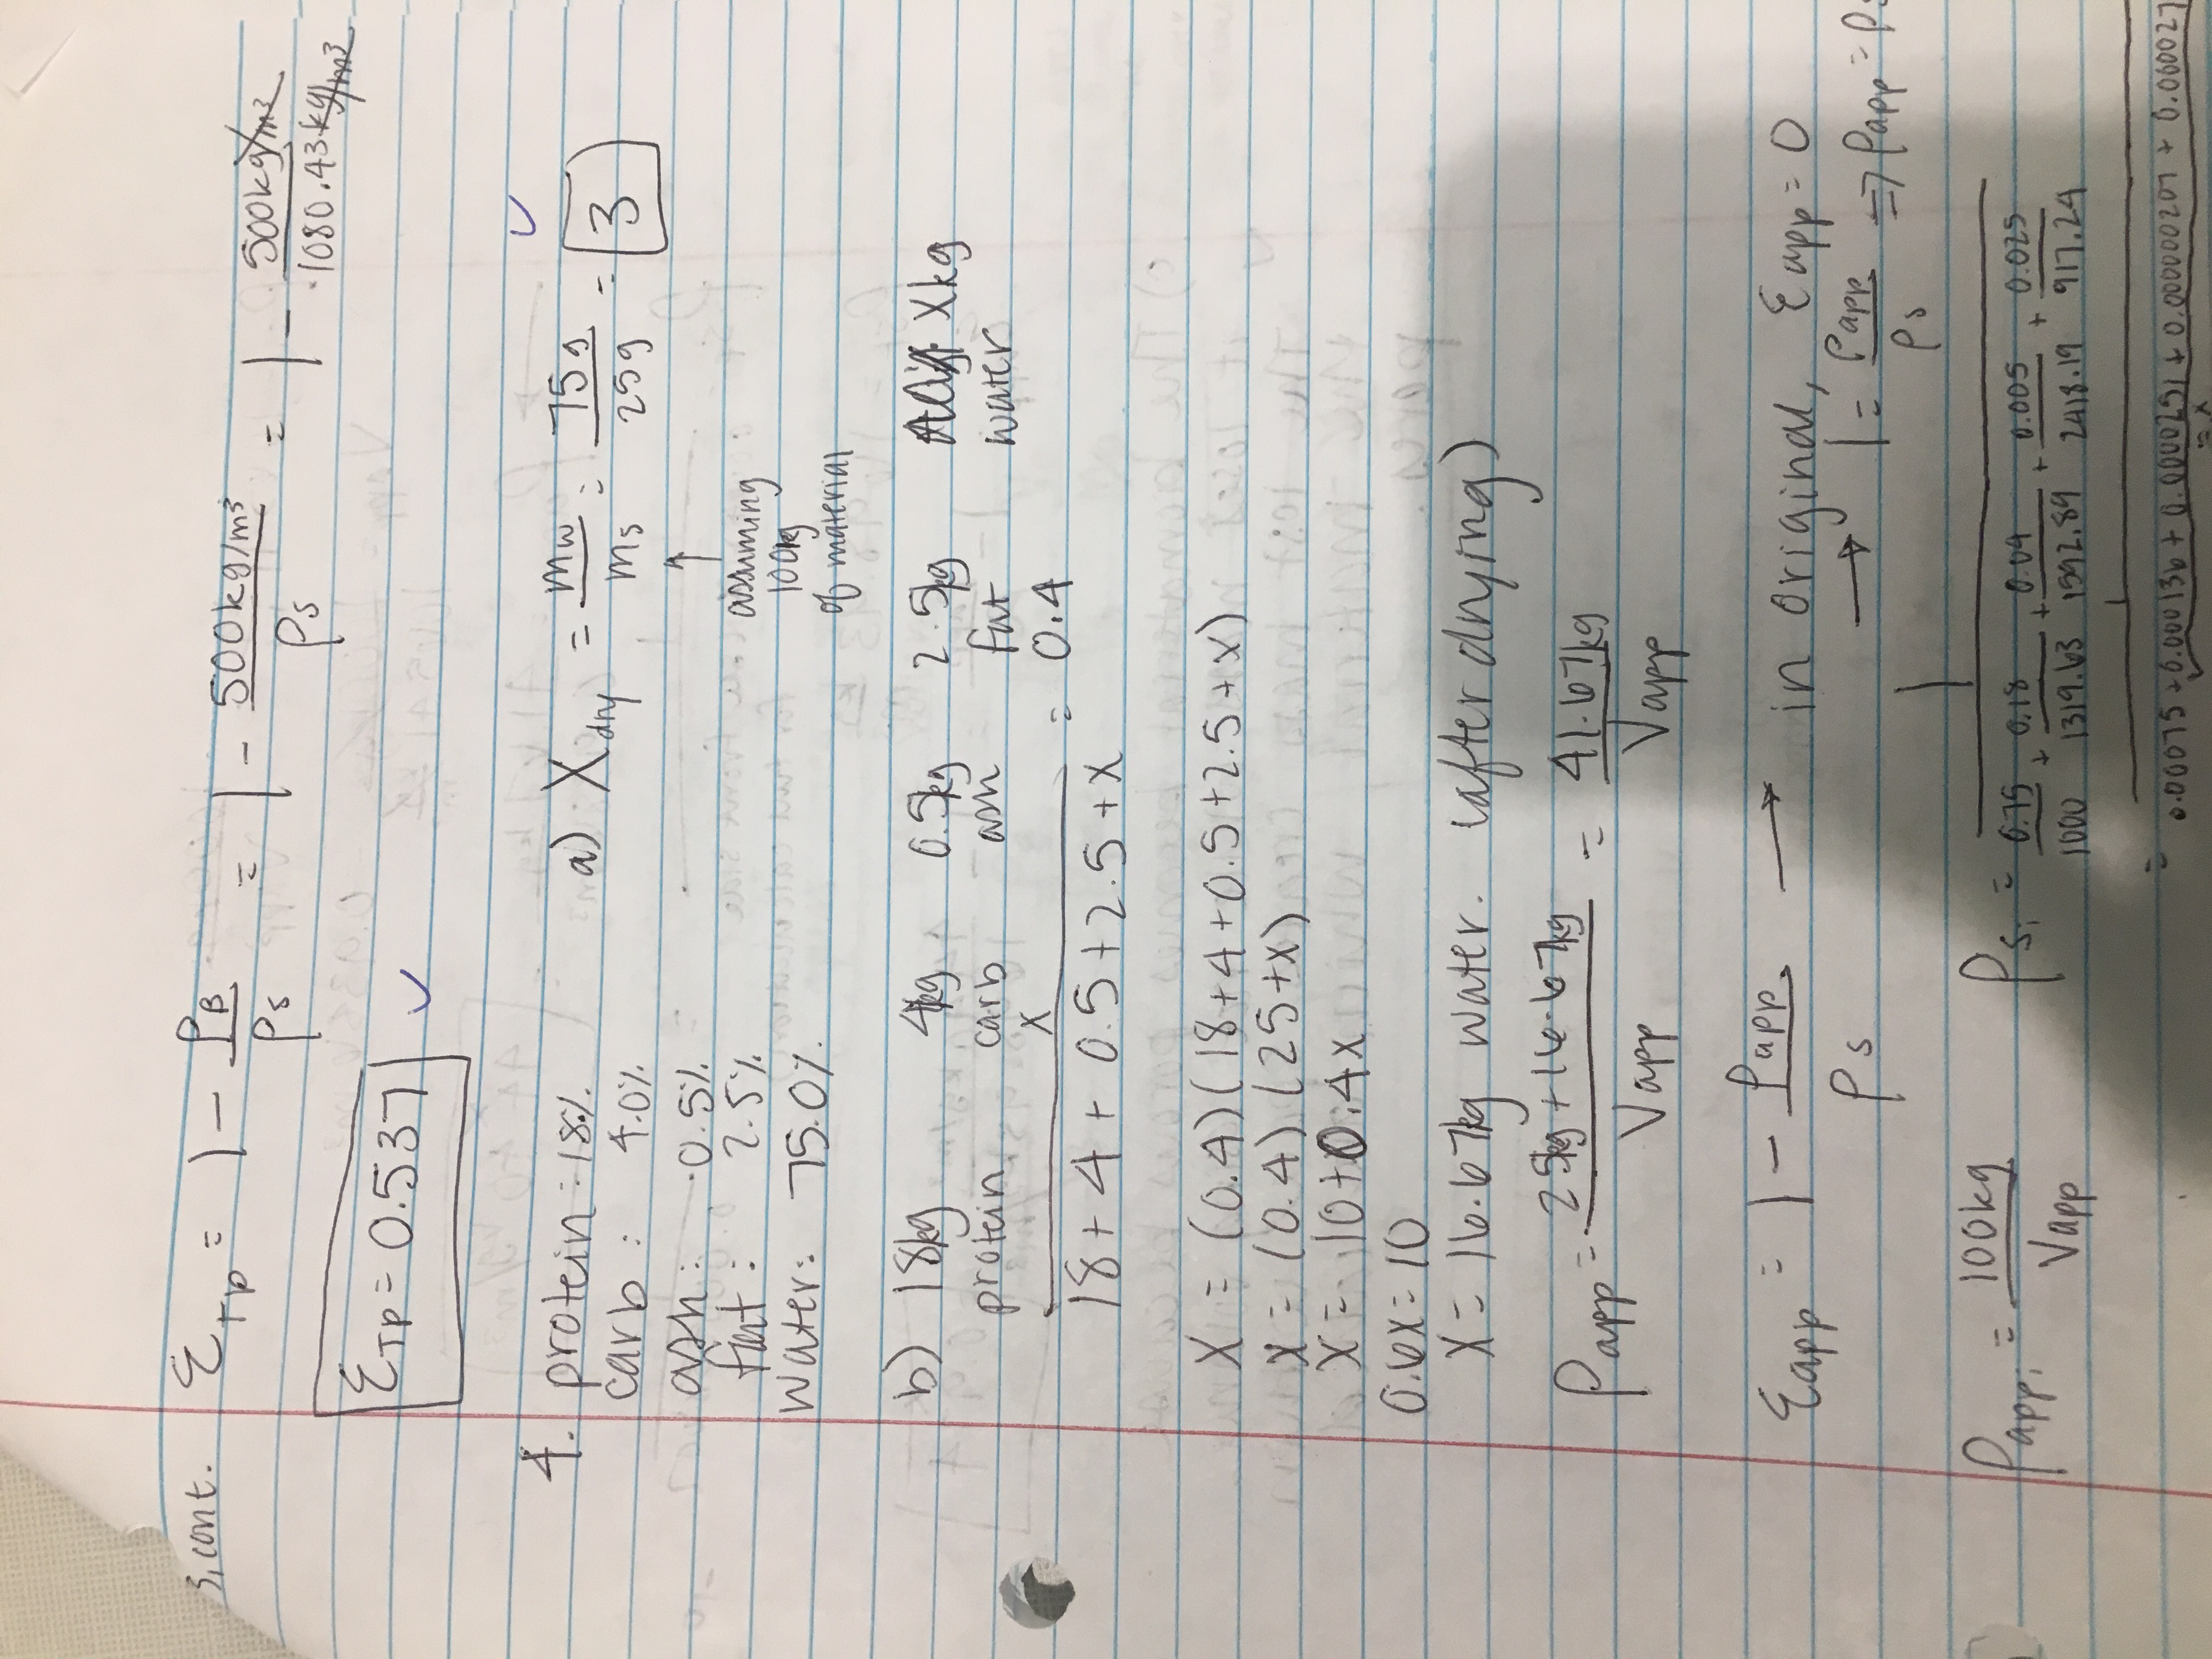 3, cont. ε_Tp = 1 - ρ_B/ρ_s = 1 - 500kg/m³/ρ_s = 1 - 500kg/m³/1080.43kg/m³
ε_Tp = 0.537 ✓
4. protein: 18%
carb: 4.0%
ash: 0.5%
fat: 2.5%
Water: 75.0%
a) X_dry = m_w/m_s = 75g/25g = 3 ✓
↑
assuming
100kg
of material
b) 18kg 4kg 0.5kg 2.5kg Xkg
protein carb ash fat water
x/(18+4+0.5+2.5+x) = 0.4
X = (0.4)(18+4+0.5+2.5+x)
x = (0.4)(25+x)
x = 10+0.4x
0.6x=10
x = 16.67kg water. (after drying)
ρ_app = (25kg+16.67kg)/V_app = 41.67kg/V_app
ε_app = 1 - ρ_app/ρ_s → in original, ε_app = 0
→ 1 = ρ_app/ρ_s ⇒ ρ_app = ρs
ρ_app,i = 100kg/V_app ρ_s,i = 1/(0.75/1000 + 0.18/1319.63 + 0.04/1592.89 + 0.005/2418.19 + 0.025/917.24)
= 1/(0.00075 + 0.000136 + 0.0000251 + 0.000000207 + 0.000027